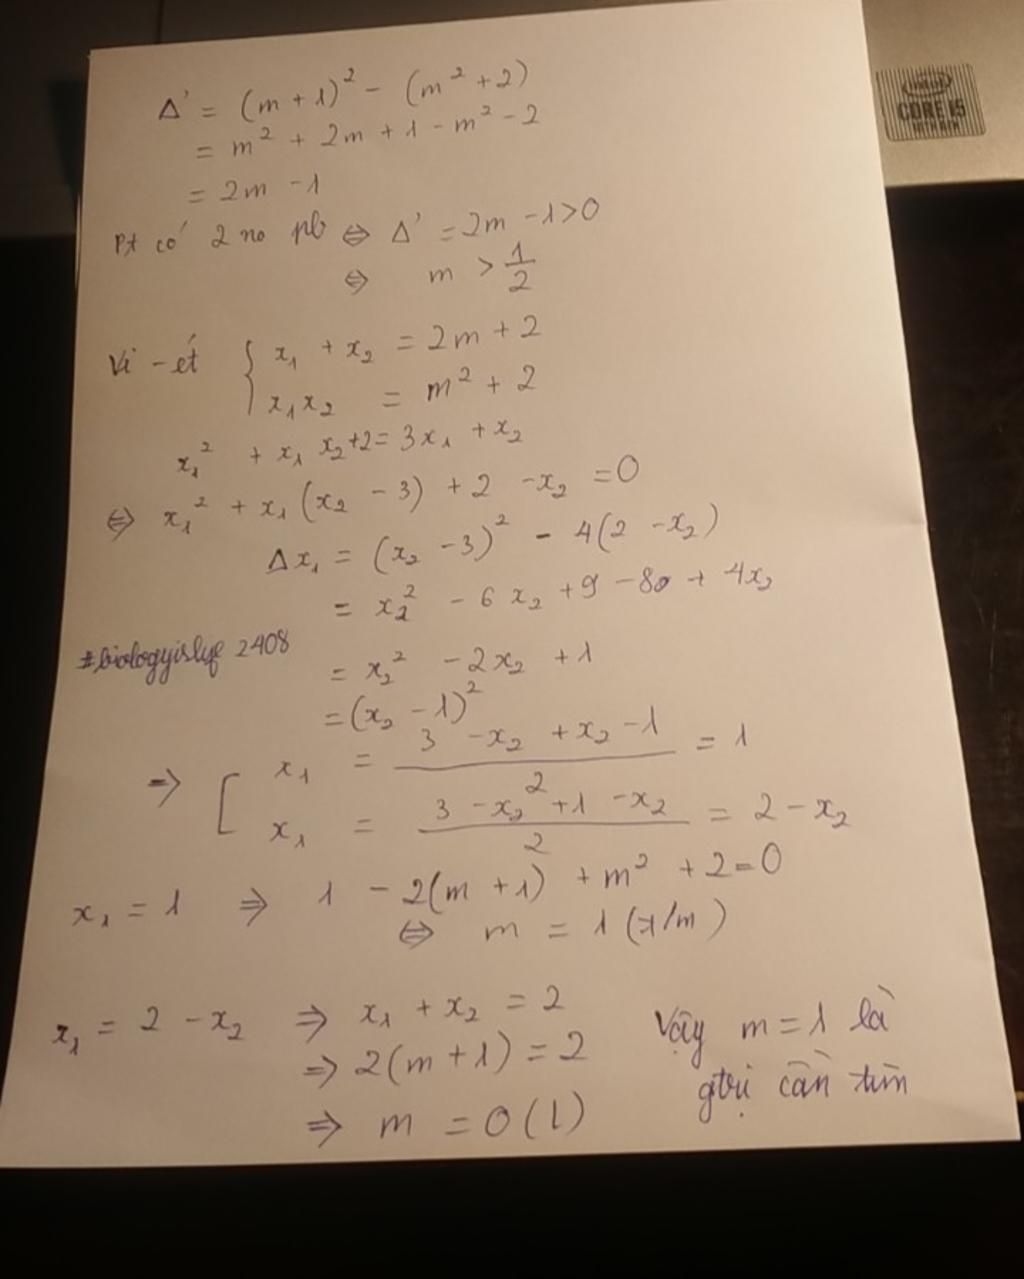 Δ' = (m + 1)² - (m² + 2)
= m² + 2m + 1 - m² - 2
= 2m - 1
Pt có 2 no pb ⇔ Δ' = 2m - 1 > 0
⇔ m > 1/2
Vi - ét { x₁ + x₂ = 2m + 2
x₁x₂ = m² + 2
x₁² + x₁x₂ + 2 = 3x₁ + x₂
⇔ x₁² + x₁(x₂ - 3) + 2 - x₂ = 0
Δx₁ = (x₂ - 3)² - 4(2 - x₂)
= x₂² - 6x₂ + 9 - 8 + 4x₂
#biologyislyf 2408
= x₂² - 2x₂ + 1
= (x₂ - 1)²
⇒ [ x₁ = (3 - x₂ + x₂ - 1)/2 = 1
x₁ = (3 - x₂ + 1 - x₂)/2 = 2 - x₂
x₁ = 1 ⇒ 1 - 2(m + 1) + m² + 2 = 0
⇔ m = 1 (t/m)
x₁ = 2 - x₂ ⇒ x₁ + x₂ = 2
⇒ 2(m + 1) = 2
⇒ m = 0 (l)
Vậy m = 1 là
gtrị cần tìm
intel
CORE i5